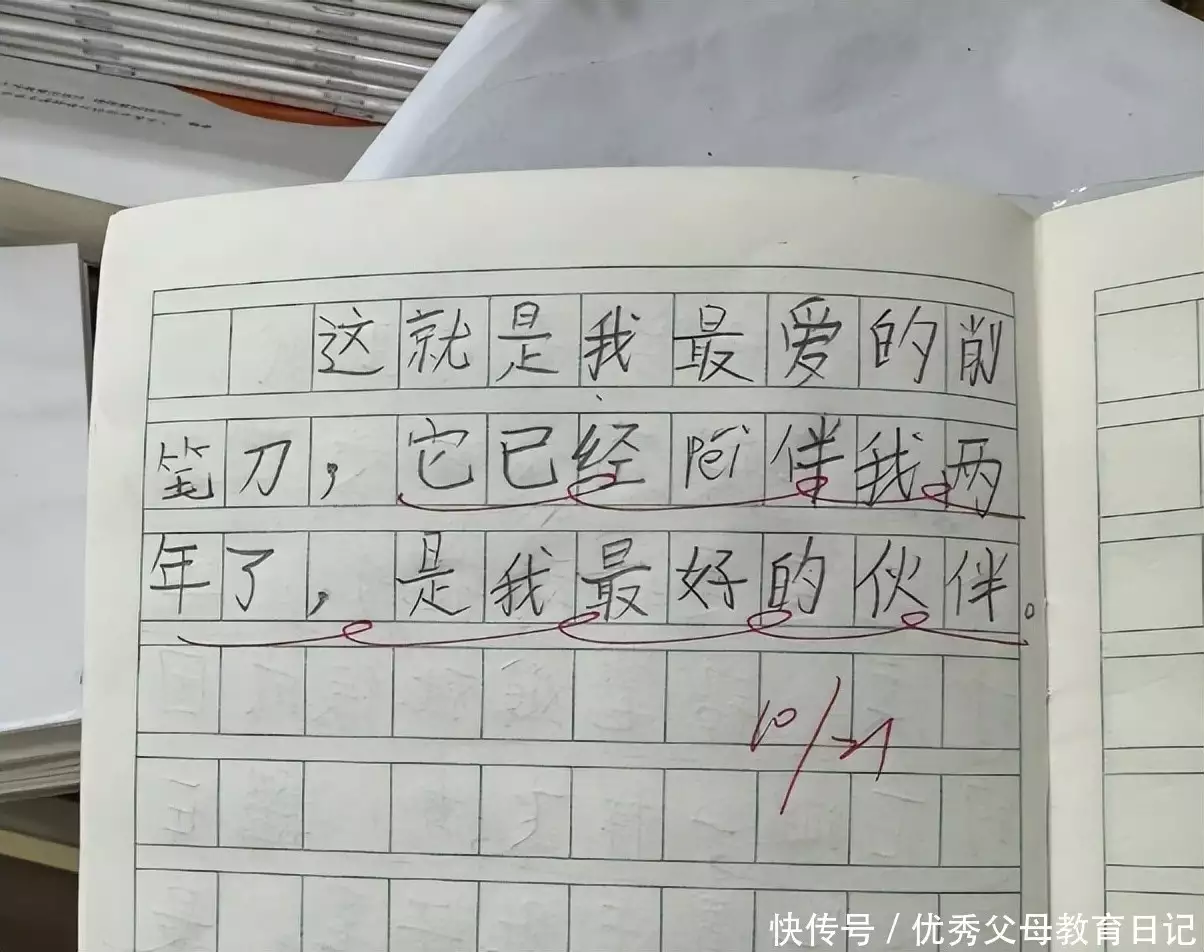 这就是我最爱的削
笔刀，它已经péi伴我两
年了，是我最好的伙伴。
快传号 / 优秀父母教育日记